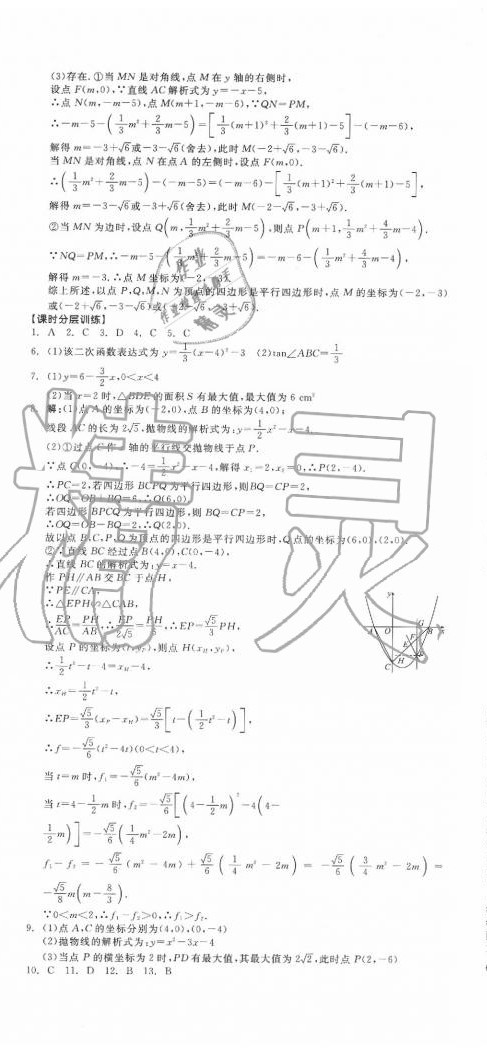 (3)存在.①当 MN 是对角线,点 M 在 y 轴的右侧时,
设点 F(m,0),∵直线 AC 解析式为 y=-x-5,
∴点 N(m,-m-5),点 M(m+1,-m-6),∵QN=PM,
∴-m-5-(1/3m²+2/3m-5)=[1/3(m+1)²+2/3(m+1)-5]-(-m-6),
解得 m=-3+√6或-3-√6(舍去),此时 M(-2+√6,-3-√6).
当 MN 是对角线,点 N 在点 A 的左侧时,设点 F(m,0).
∴(1/3m²+2/3m-5)-(-m-5)=(-m-6)-[1/3(m+1)²+2/3(m+1)-5],
解得 m=-3-√6或-3+√6(舍去),此时 M(-2-√6,-3+√6).
②当 MN 为边时,设点 Q(m,1/3m²+2/3m-5),则点 P(m+1,1/3m²+4/3m-4).
∵NQ=PM,∴-m-5-(1/3m²+2/3m-5)=-m-6-(1/3m²+4/3m-4),
解得 m=-3.∴点 M 坐标为(-2,-3).
综上所述,以点 P,Q,M,N 为顶点的四边形是平行四边形时,点 M 的坐标为(-2,-3)
或(-2+√6,-3-√6)或(-2-√6,-3+√6).
【课时分层训练】
1. A 2. C 3. D 4. C 5. C
6. (1)该二次函数表达式为 y=1/3(x-4)²-3 (2)tan∠ABC=1/3
7. (1)y=6-3/2x,0<x<4
(2)当 x=2 时,△BDE 的面积 S 有最大值,最大值为 6 cm²
8. 解:(1)点 A 的坐标为(-2,0),点 B 的坐标为(4,0);
线段 AC 的长为 2√5,抛物线的解析式为:y=1/2x²-x-4.
(2)①过点 C 作 x 轴的平行线交抛物线于点 P.
∵点 C(0,-4),∴-4=1/2x²-x-4,解得 x₁=2,x₂=0,∴P(2,-4).
∴PC=2,若四边形 BCPQ 为平行四边形,则 BQ=CP=2,
∴OQ=OB+BQ=6,∴Q(6,0).
若四边形 BPCQ 为平行四边形,则 BQ=CP=2,
∴OQ=OB-BQ=2,∴Q(2,0).
故以点 B,C,P,Q 为顶点的四边形是平行四边形时,Q 点的坐标为(6,0),(2,0).
②∵直线 BC 经过点 B(4,0),C(0,-4),
∴直线 BC 的解析式为:y=x-4.
作 PH∥AB 交 BC 于点 H,
∵PE∥CA,
∴△EPH∽△CAB,
∴EP/AC=PH/AB,∴EP/2√5=PH/6,∴EP=√5/3PH,
设点 P 的坐标为(t,yₚ),则点 H(x_H,yₚ),
∴1/2t²-t-4=x_H-4,
∴x_H=1/2t²-t,
∴EP=√5/3(xₚ-x_H)=√5/3[t-(1/2t²-t)],
∴f=-√5/6(t²-4t)(0<t<4),
当 t=m 时,f₁=-√5/6(m²-4m),
当 t=4-1/2m 时,f₂=-√5/6[(4-1/2m)²-4(4-
1/2m)]=-√5/6(1/4m²-2m),
f₁-f₂=-√5/6(m²-4m)+√5/6(1/4m²-2m)=-√5/6(3/4m²-2m)=
-√5/8m(m-8/3).
∵0<m<2,∴f₁-f₂>0,∴f₁>f₂.
9. (1)点 A,C 的坐标分别为(4,0),(0,-4)
(2)抛物线的解析式为:y=x²-3x-4
(3)当点 P 的横坐标为 2 时,PD 有最大值,其最大值为 2√2,此时点 P(2,-6)
10. C 11. D 12. B 13. B
精灵
作业
作业检查小助手
精灵